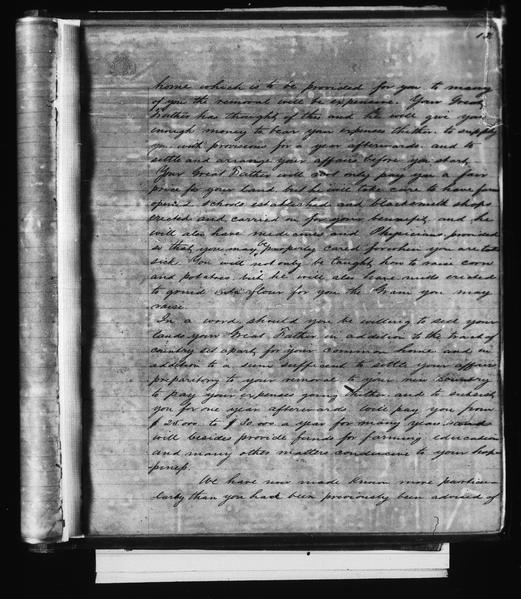 12
home which is to be provided for you to many
of you the removal will be expensive. Your Great
Father has thought of this and he will give you
enough money to bear your expenses thither, to supply
you with provisions for a year afterwards, and to
settle and arrange your affairs before you start.
Your Great Father will not only pay you a fair
price for your land, but he will take care to have farms
opened, schools established, and blacksmith shops
erected and carried on for your bennefit, and he
will also have medicines and Physicians, provided
so that you may be properly cared for when you are taken
sick. You will not only be taught how to raise corn
and potatoes, but he will also have mills erected
to grind into flour for you the Grain you may
raise.
In a word should you be willing to sell your
lands your Great Father, in addition to the tract of
country set apart, for your common home and in
addition to a sum sufficent to settle your affairs
preparatory to your removal to your new Country
to pay your expenses going thither and to subsist
you for one year afterwards will pay you from
$ 25.000 to $ 30.000 a year for many years and
will besides provide funds for farming education
and many other matters conducive to your hap-
piness.
We have now made known more particu-
larly than you had been previously been advised of